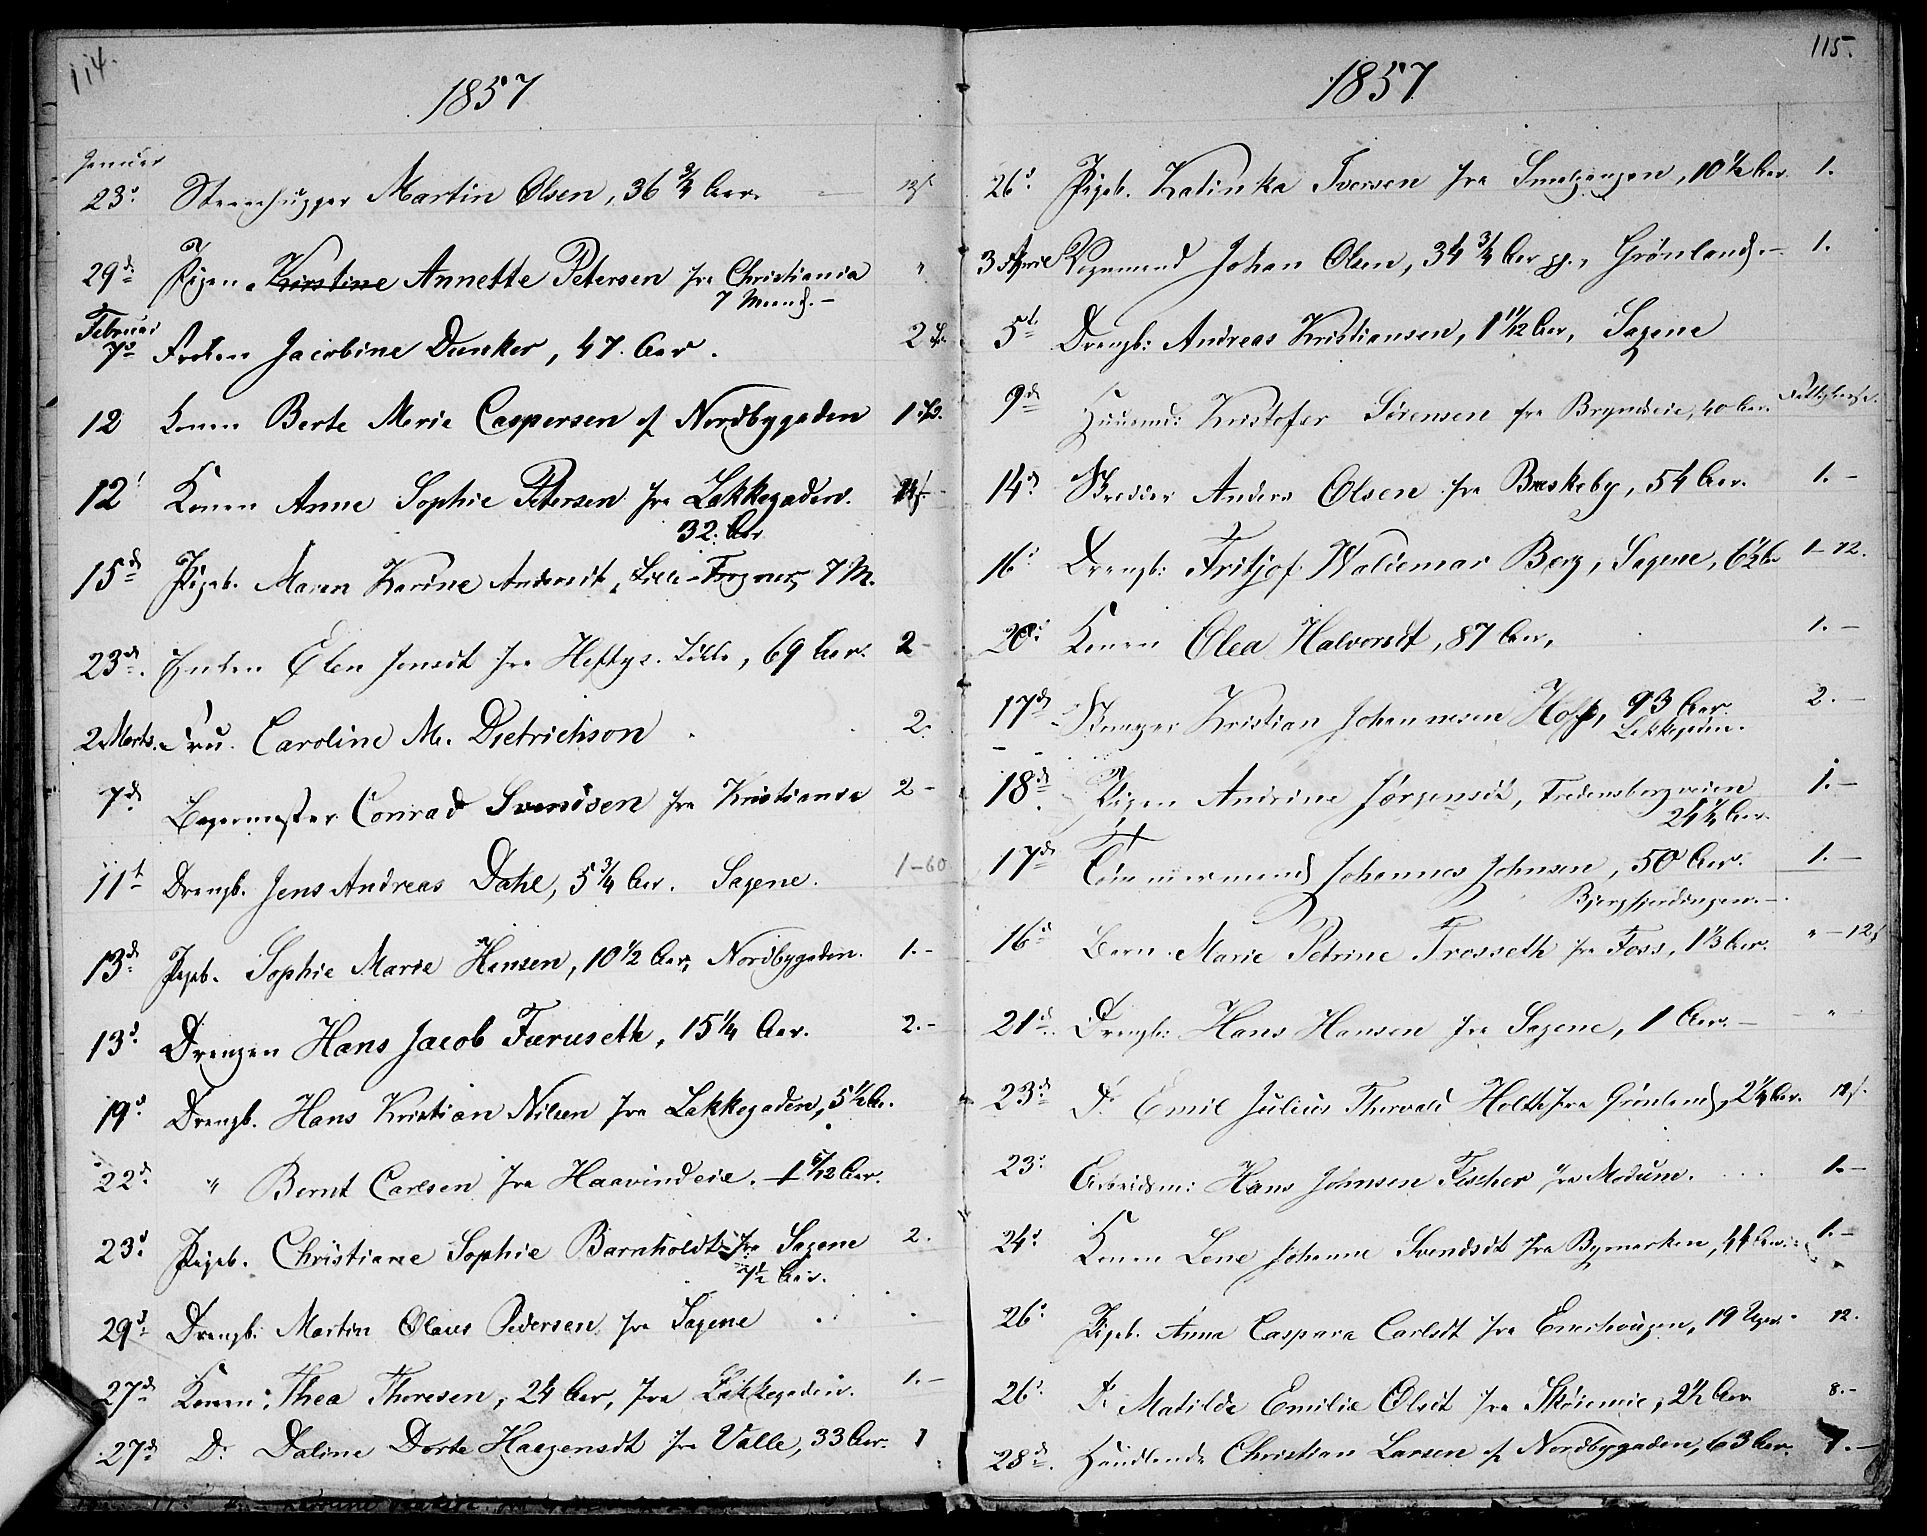 114.
1857
Januar
23d Steenhugger Martin Olsen, 36 3/4 Aar.
29de Pigen Kirstine Annette Petersen fra Christiania "
7 Maand. –
Februar
7d Frøken Jacobine Dunker, 47. Aar. 2
12 Konen Berte Marie Caspersen af Nordbygaden 1
12 Konen Anne Sophie Petersen fra Lakkegaden.
32. Aar
15de Pigeb. Maren Karine Andersdt, Lille-Frogner, 7 M.
23de Enken Elen Jensdt fra Heftys Løkke, 69 Aar. 2 –
2 Marts. Fru. Caroline M. Dietrichson. 2.
7de Bagermester Conrad Svendsen fra Kristiania 2 –
11t Drengb. Jens Andreas Dahl, 5 3/4 Aar. Sagene. 1–60
13de Pigeb. Sophie Marie Hansen, 10 1/2 Aar, Nordbygaden. 1. –
13d Drengen Hans Jacob Furuseth, 15 1/4 Aar. 2. –
19d Drengb. Hans Kristian Nilsen fra Lakkegaden, 5 1/2 Aar.
22de " Bernt Carlsen fra Haavindeie. – 1 5/12 Aar.
23d Pigeb. Christiane Sophie Barnholdt fra Sagene 2.
7 1/2 Aar.
29d Drengb. Martin Olaus Pedersen fra Sagene
27de Konen Thea Thoresen, 24 Aar, fra Lakkegaden. 1. –
27de Do Daline Dorte Haagensdt fra Valle, 33 Aar. 1
115.
1857
26d Pigeb. Katinka Iversen fra Smalgangen, 10 1/2 Aar. 1.
3 April Vognmand Johan Olsen, 34 3/4 Aar gl., Grønland. – 1.
5t Drengb: Andreas Kristiansen, 1 11/12 Aar, Sagene
9de Huusmd: Kristofer Sørensen fra Bryndseie, 40 Aar.
14d Skrædder Anders Olsen fra Briskeby, 54 Aar. 1. –
16d Drengb: Fritjof Waldemar Berg, Sagene, 6 1/2 Aar 1–12.
20d Konen Olea Halvorsdt, 87 Aar, 1. –
17de Kristian Johannesen Hoff, 93 Aar. 2. –
Lakkegaden.
18de Pigen Andrine Jørgensdt, Fredensborgveien 1. –
24 1/4 Aar.
17de Tømmermand Johannes Johnsen, 50 Aar. 1. –
Bjergfjerdingen. –
16d Barn Marie Petrine Trosseth fra Foss, 1 1/3 Aar. " – 12 s
21d Drengb: Hans Hansen fra Sagene, 1 Aar. – "
23de Do Emil Julius Thorvald Holth fra Grønland, 2 1/4 Aar. 12 s.
23d Arbeidsm: Hans Johnsen Fischer fra Modum. 1. –
24d Konen Lene Johanne Svendsdt fra Bymarken, 44 Aar 1. –
26d Pigeb. Anna Caspara Carlsdt fra Enerhougen, 19 Uger. 12.
26d Do Matilde Emilie Olsdt fra Skøienvie, 2 1/2 Aar 8. –
28de Handlende Christian Larsen af Nordbygaden, 63 Aar. 1. –